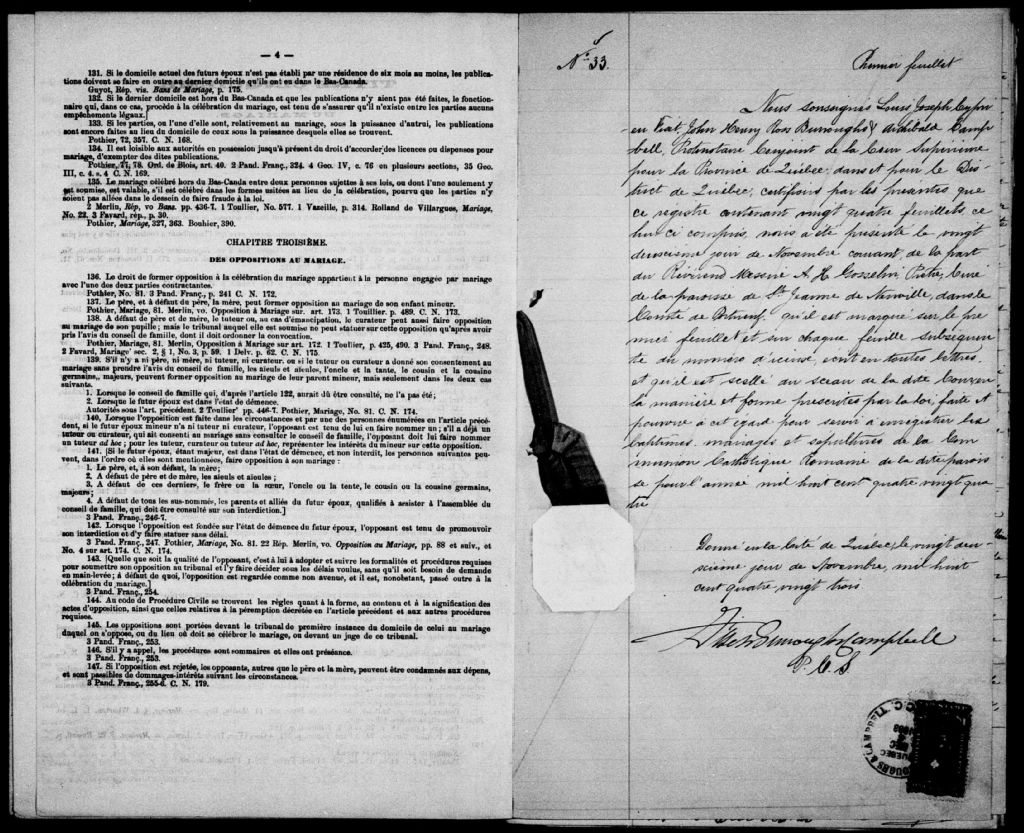 — 4 —
131. Si le domicile actuel des futurs époux n'est pas établi par une résidence de six mois au moins, les publica-
tions doivent se faire en outre au dernier domicile qu'ils ont eu dans le Bas-Canada.
Guyot, Rép. vis. Bans de Mariage, p. 175.
132. Si le dernier domicile est hors du Bas-Canada et que les publications n'y aient pas été faites, le fonction-
naire qui, dans ce cas, procède à la célébration du mariage, est tenu de s'assurer qu'il n'existe entre les parties aucuns
empêchements légaux.]
133. Si les parties, ou l'une d'elle sont, relativement au mariage, sous la puissance d'autrui, les publications
sont encore faites au lieu du domicile de ceux sous la puissance desquels elles se trouvent.
Pothier, 72, 357. C. N. 168.
134. Il est loisible aux autorités en possession jusqu'à présent du droit d'accorder des licences ou dispenses pour
mariage, d'exempter des dites publications.
Pothier, 77, 78. Ord. de Blois, art. 40. 2 Pand. Franç., 324. 4 Geo. IV, c. 76 en plusieurs sections, 35 Geo.
III, c. 4. s. 4 C. N. 169.
135. Le mariage célébré hors du Bas-Canda entre deux personnes sujettes à ses lois, ou dont l'une seulement y
est soumise, est valable, s'il est célébré dans les formes usitées au lieu de la célébration, pourvu que les parties n'y
soient pas allées dans le dessein de faire fraude à la loi.
2 Merlin, Rép, vo Bans. pp. 436-7. 1 Toullier, No. 577. 1 Vazeille, p. 314. Rolland de Villargues, Mariage,
No. 22. 3 Favard, rép., p. 30.
Pothier, Mariage, 327, 363. Bouhier, 390.
CHAPITRE TROISIÈME.
DES OPPOSITIONS AU MARIAGE.
136. Le droit de former opposition à la célébration du mariage appartient à la personne engagée par mariage
avec l'une des deux parties contractantes.
Pothier, No. 81. 3 Pand. Franç., p. 241 C. N. 172.
137. Le père, et à défaut du père, la mère, peut former opposition au mariage de son enfant mineur.
Pothier, Mariage, 81. Merlin, vo. Opposition à Mariage sur art. 173. 1 Touillier. p. 489. C. N. 173.
138. A défaut de père et de mère, le tuteur ou, au cas d'émancipation, le curateur peut aussi faire opposition
au mariage de son pupille ; mais le tribunal auquel elle est soumise ne peut statuer sur cette opposition qu'après avoir
pris l'avis du conseil de famille, dont il doit ordonner la convocation.
Pothier, Mariage, 81. Merlin, Opposition à Mariage sur art. 172. 1 Toullier, p. 425, 490. 3 Pand. Franç., 248.
2 Favard, Mariage' sec. 2, § 1, No. 3, p. 59. 1 Delv. p. 62. C. N. 175.
139. S'il n'y a ni père, ni mère, ni tuteur, ni curateur. ou si le tuteur ou curateur a donné son consentement au
mariage sans prendre l'avis du conseil de famille, les aieuls et aieules, l'oncle et la tante, le cousin et la cousine
germains, majeurs, peuvent former opposition au mariage de leur parent mineur, mais seulement dans les deux cas
suivants.
1. Lorsque le conseil de famille qui, d'après l'article 122, aurait dû être consulté, ne l'a pas été ;
2. Lorsque le futur époux est dans l'état de démence.
Autorités sous l'art. précédent. 2 Toullier' pp. 446-7. Pothier, Mariage, No. 81. C. N. 174.
140, Lorsque l'opposition est faite dans les circonstances et par une des personnes énumérées en l'article précé-
dent, si le futur époux mineur n'a ni tuteur ni curateur, l'opposant est tenu de lui en faire nommer un ; s'il a déjà un
tuteur ou curateur, qui ait consenti au mariage sans consulter le conseil de famille, l'opposant doit lui faire nommer
un tuteur ad hoc ; pour les tuteur, curateur ou tuteur ad hoc, représenter les intérêts du mineur sur cette opposition.
141. [Si le futur époux, étant majeur, est dans l'état de démence, et non interdit, les personnes suivantes peu-
vent, dans l'ordre où elles sont mentionnées, faire opposition à son mariage :
1. Le père, et, à son défaut, la mère ;
2. A défaut de père et de mère, les aïeuls et aïeules ;
3. A défaut de ces derniers, le frère ou la sœur, l'oncle ou la tente, le cousin ou la cousine germains,
majeurs ;
4. A défaut de tous les sus-nommés, les parents et alliés du futur époux, qualifiés à assister à l'assemblée du
conseil de famille, qui doit être consulté sur son interdiction.]
3 Pand. Franç., 246-7.
142. Lorsque l'opposition est fondée sur l'état de démence du futur époux, l'opposant est tenu de promouvoir
son interdiction et d'y faire statuer sans délai.
3 Pand. Franç., 247. Pothier, Mariage, No. 81. 22 Rép. Merlin, vo. Opposition au Mariage, pp. 88 et suiv., et
No. 4 sur art. 174. C. N. 174.
143. [Quelque soit la qualité de l'opposant, c'est à lui à adopter et suivre les formalités et procédures requises
pour soumettre son opposition au tribunal et l'y faire décider sous les délais voulus, sans qu'il soit besoin de demande
en main-levée ; à défaut de quoi, l'opposition est regardée comme non avenue, et il est, nonobstant, passé outre à la
célébration du mariage.]
3 Pand. Franç., 254.
144. Au code de Procédure Civile se trouvent les règles quant à la forme, au contenu et à la signification des
actes d'opposition, ainsi que celles relatives à la péremption décrétée en l'article précédent et aux autres procédures
requises.
145. Les oppositions sont portées devant le tribunal de première instance du domicile de celui au mariage
duquel on s'oppose, ou du lien où doit se célébrer le mariage, ou devant un juge de ce tribunal.
3 Pand. Franç., 253.
146. S'il y a appel, les procédures sont sommaires et elles ont préséance.
3 Pand. Franç., 253.
147. Si l'opposition est rejetée, les opposants, autres que le père et la mère, peuvent être condamnés aux dépens,
et sont passibles de dommages-intérêts suivant les circonstances.
3 Pand. Franç., 255-6. C. N. 179.
No. 33.
Premier feuillet
Nous soussignés Louis Joseph Cypri-
en Fiset, John Henry Ross Burroughs & Archibald Camp
bell, Protonotaire Conjoint de la Cour Supérieure
pour la Province de Québec, dans et pour le Dis-
trict de Québec, certifions par les présentes que
ce registre contenant vingt quatre feuillets, ce
lui ci compris, nous a été présenté le vingt
deuxième jour de Novembre courant, de la part
du Révérend Messire A. H. Gosselin Prêtre, Curé
de la paroisse de St. Jeanne de Neuville, dans le
Comté de Portneuf, qu'il est marqué sur le pre
mier feuillet et sur chaque feuille subséquen
te du numéro d'icelui, écrit en toutes lettres,
et qu'il est scellé du sceau de la dite Cour, en
la manière et forme prescrites par la loi, faite et
pourvue à cet égard pour servir à enregistrer les
baptêmes, mariages et sépultures de la Com
munion Catholique Romaine de la dite parois
se pour l'année mil huit cent quatre vingt qua
tre
Donné en la Cité de Québec, le vingt deu-
xième jour de Novembre, mil huit
cent quatre vingt trois
Fiset Burroughs Campbell
P. C. S.
QUEBEC